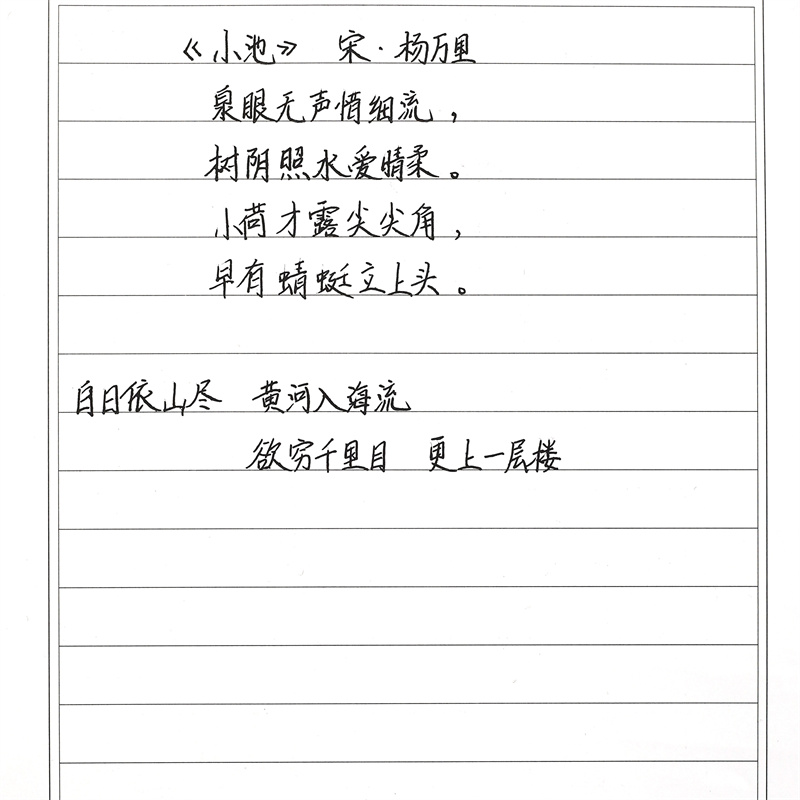 《小池》 宋·杨万里
泉眼无声惜细流，
树阴照水爱晴柔。
小荷才露尖尖角，
早有蜻蜓立上头。
自日依山尽 黄河入海流
欲穷千里目 更上一层楼